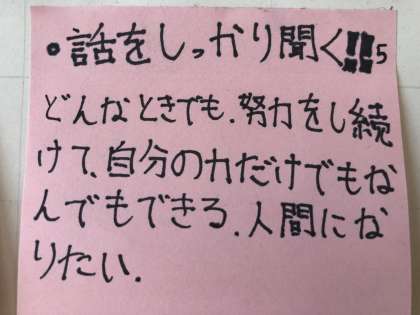 •話をしっかり聞く!!5
どんなときでも.努力をし続
けて、自分の力だけでもな
んでもできる.人間にな
りたい.